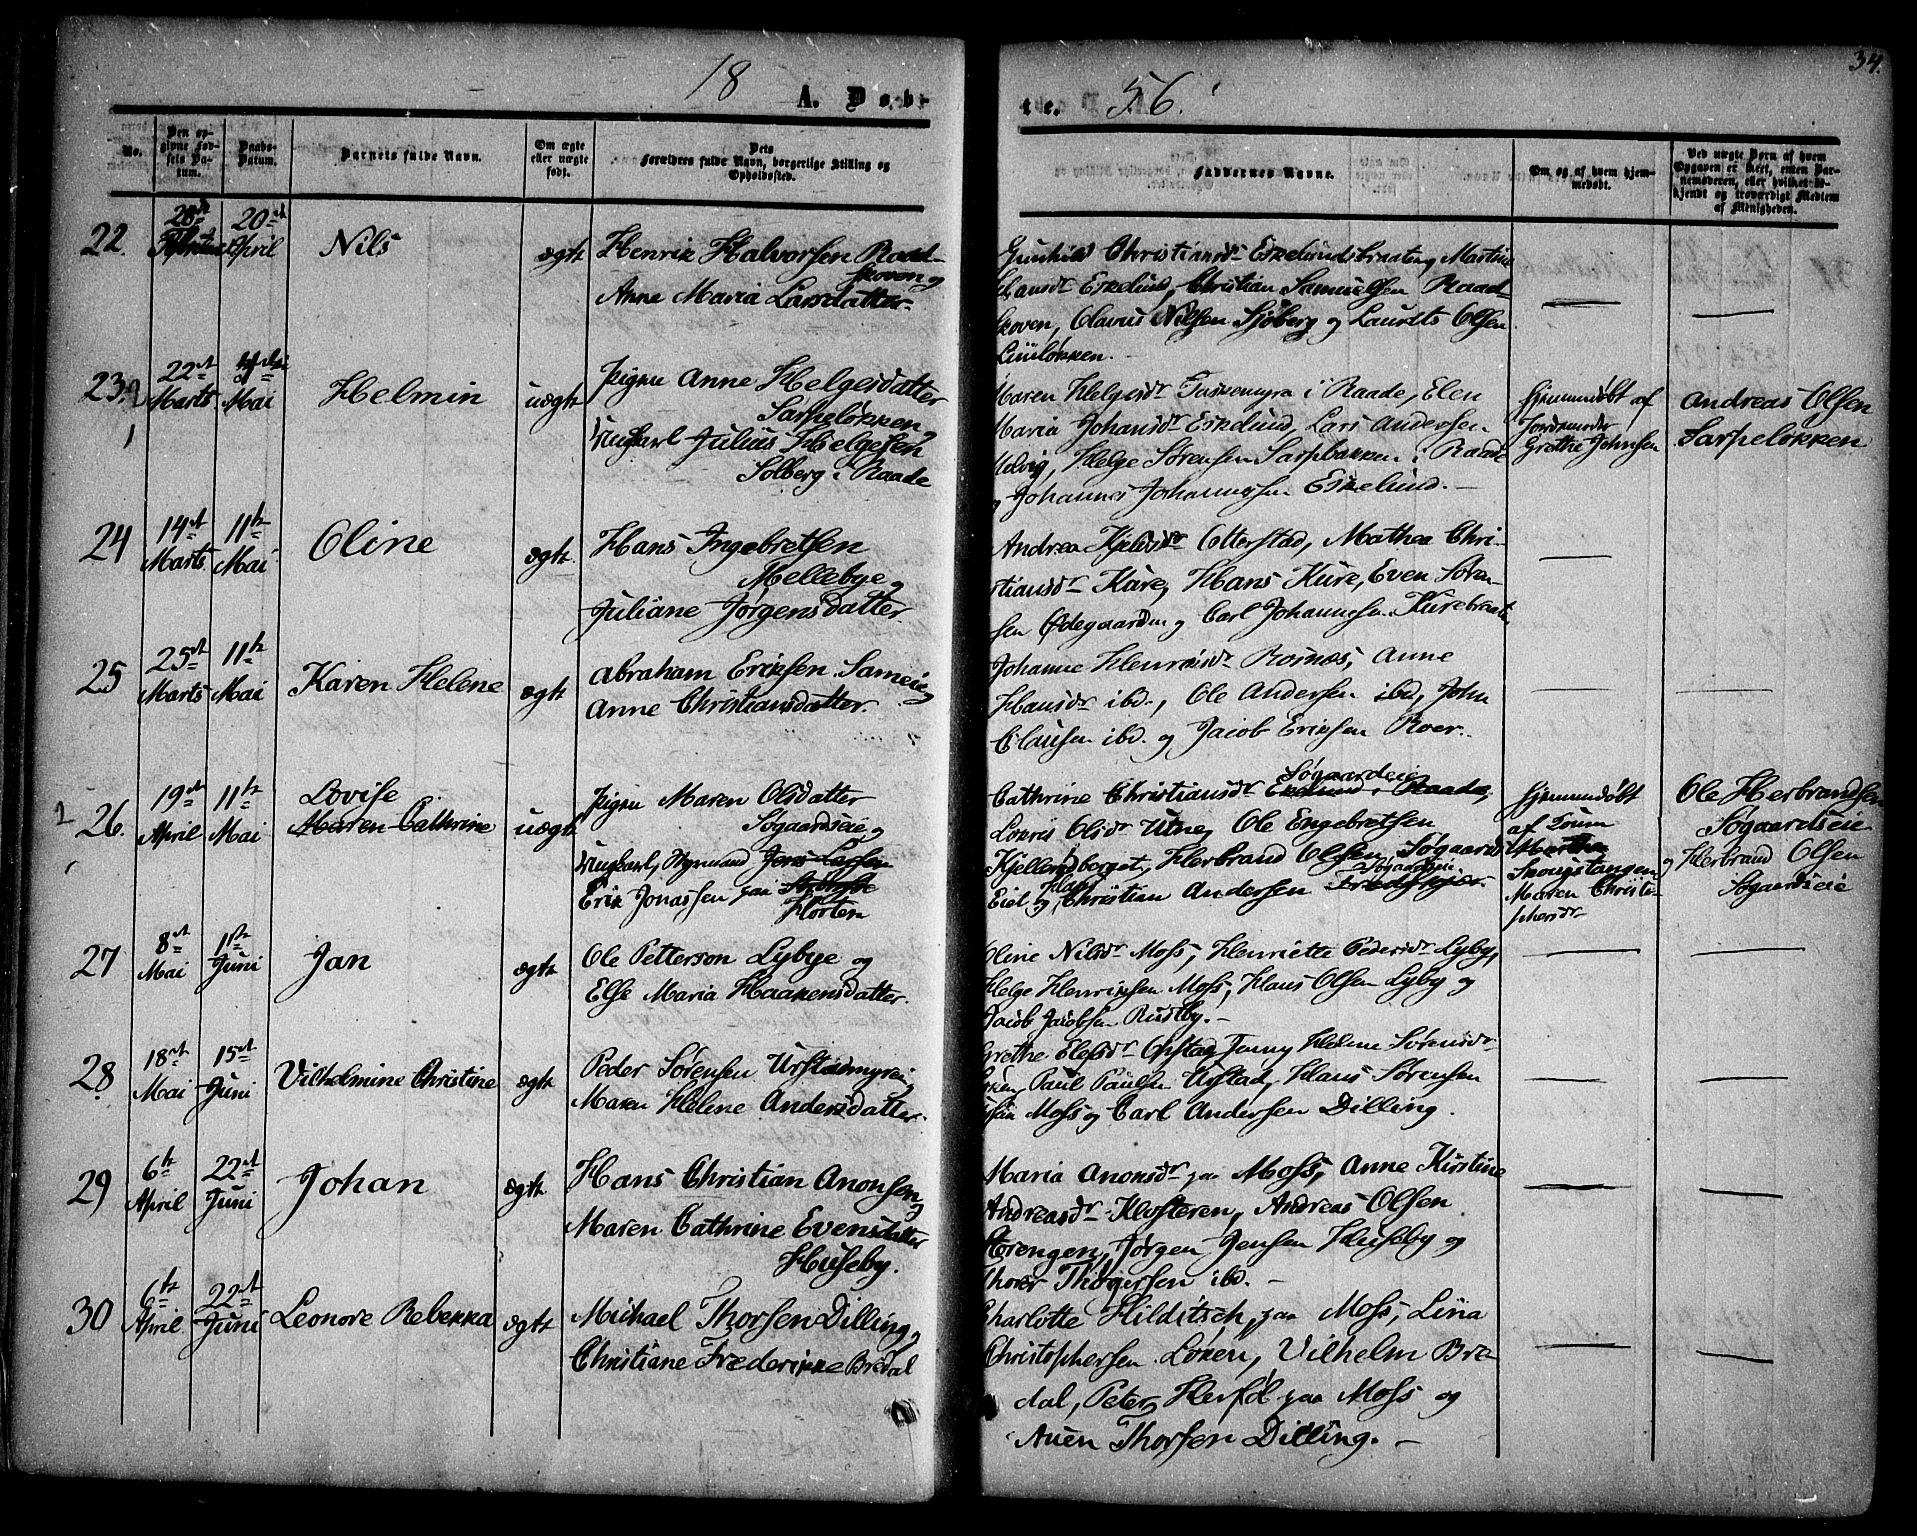 34.
18 A. Døb-
te. 56.
No.
Den op-
givne Fød-
sels Da-
tum.
Daabs-
Datum.
Barnets fulde Navn.
Om ægte
eller uægte
født.
Dets
Forældres fulde Navn, borgerlige Stilling og
Opholdssted.
Faddernes Navne.
Om og af hvem hjem-
medøbt.
Ved uægte Børn af hvem
Opgaven er skeet, enten Bar-
nemoderen, eller hvilket be-
kjendt og troværdigt Medlem
af Menigheden.
22.
20de
April
Nils
ægte
Henrik Halvorsen Raad-
skoven og
Anne Maria Larsdatter
Gunhild Christiansdr Eskelundsbraaten, Martine
Hansdr Eskelund, Christian Samuelsen Raad-
skoven, Olavus Nilsen Sjøberg og Laurits Olsen
23.
22de
Marts
Mai
Helmin
uægte
Pigen Anne Helgesdatter
Sarpeløkken og
Ungkarl Julius Helgesen
Solberg i Raade
Maren Helgesdr Taskemyra i Raade, Elen
Maria Johansdr Eskelund, Lars Andersen
Helge Sørensen Sarpbakken i Raade
og Johannes Johannesen Eskelund.
Hjemmedøbt af
Jordemoder
Grethe Johnsen
Andreas Olsen
Sarpeløkken
24
14de
Marts
11te
Mai
Oline
ægte
Hans Ingebretsen
Mellebye og
Juliane Jørgensdatter
Andrea Kjelsdr Otterstad, Mathea Chri-
stiansdr Kure, Hans Kure, Even Søren-
sen Ødegaarden og Carl Johannesen Kurebraaten
25
25de
Marts
11te
Mai
Karen Helene
ægte
Abraham Eriksen Sameie og
Anne Christiansdatter
Johanne Henriksdr Rosnæs, Anne
Hansdr ibd., Ole Andersen ibd, John
Clausen ibd. og Jacob Eriksen Roer.
26.
19de
April
11te
Mai
Lovise
Maren Cathrine
uægte
Pigen Maren Olsdatter
Søgaardseie og
Ungkarl, Styrmand Jens Larsen
Erik Jonassen paa Strømsøe
Horten
Søgaardeie
Cathrine Christiansdr Eskelund i Raade,
Lovris Olsdr Utne, Ole Engebretsen
Kjellandberget, Herbrand Olsen Søgaards
Eiet og Christian Andersen
Hjemmedøbt
af
Martha
Skougstangen
Maren Christo-
phersdr
Ole Herbrandsen
Søgaardseie
og Herbrand Olsen
Søgaardseie
27
8de
Mai
1ste
Juni
Jan
ægte
Ole Petterson Lybye og
Else Maria Haakensdatter.
Oline Nilsdr Moss, Henriette Pedersdr Lyby,
Helge Henriksen Moss, Hans Olsen Lyby og
Jacob Jacobsen Rudby.
28
18de
Mai
15de
Juni
Vilhelmine Christine
ægte
Peder Sørensen Urstadmyren og
Maren Helene Andersdatter.
Grethe Elefsdr Opstad, Jenny Helene Sørensdr
Paul Paulsen Urstad, Hans Sørensen
Moss og Carl Andersen Dilling.
29
6te
April
22de
Juni
Johan
ægte
Hans Christian Anonsen og
Maren Cathrine Evensdatter
Huseby.
Maria Anonsdr paa Moss, Anne Kirstine
Andreasdr Klosteren, Andreas Olsen
Størengen, Jørgen Jensen Huseby og
Thorer Thøgersen ibd.
30
6te
April
22de
Juni
Leonore Rebekka
ægte
Michael Thorsen Dilling og
Christiane Frederikke Bredal
Charlotte Hilditsch, paa Moss, Lina
Christophersen Løken, Vilhelm Bre-
dal, Peter Herføl paa Moss og
Auen Thorsen Dilling.